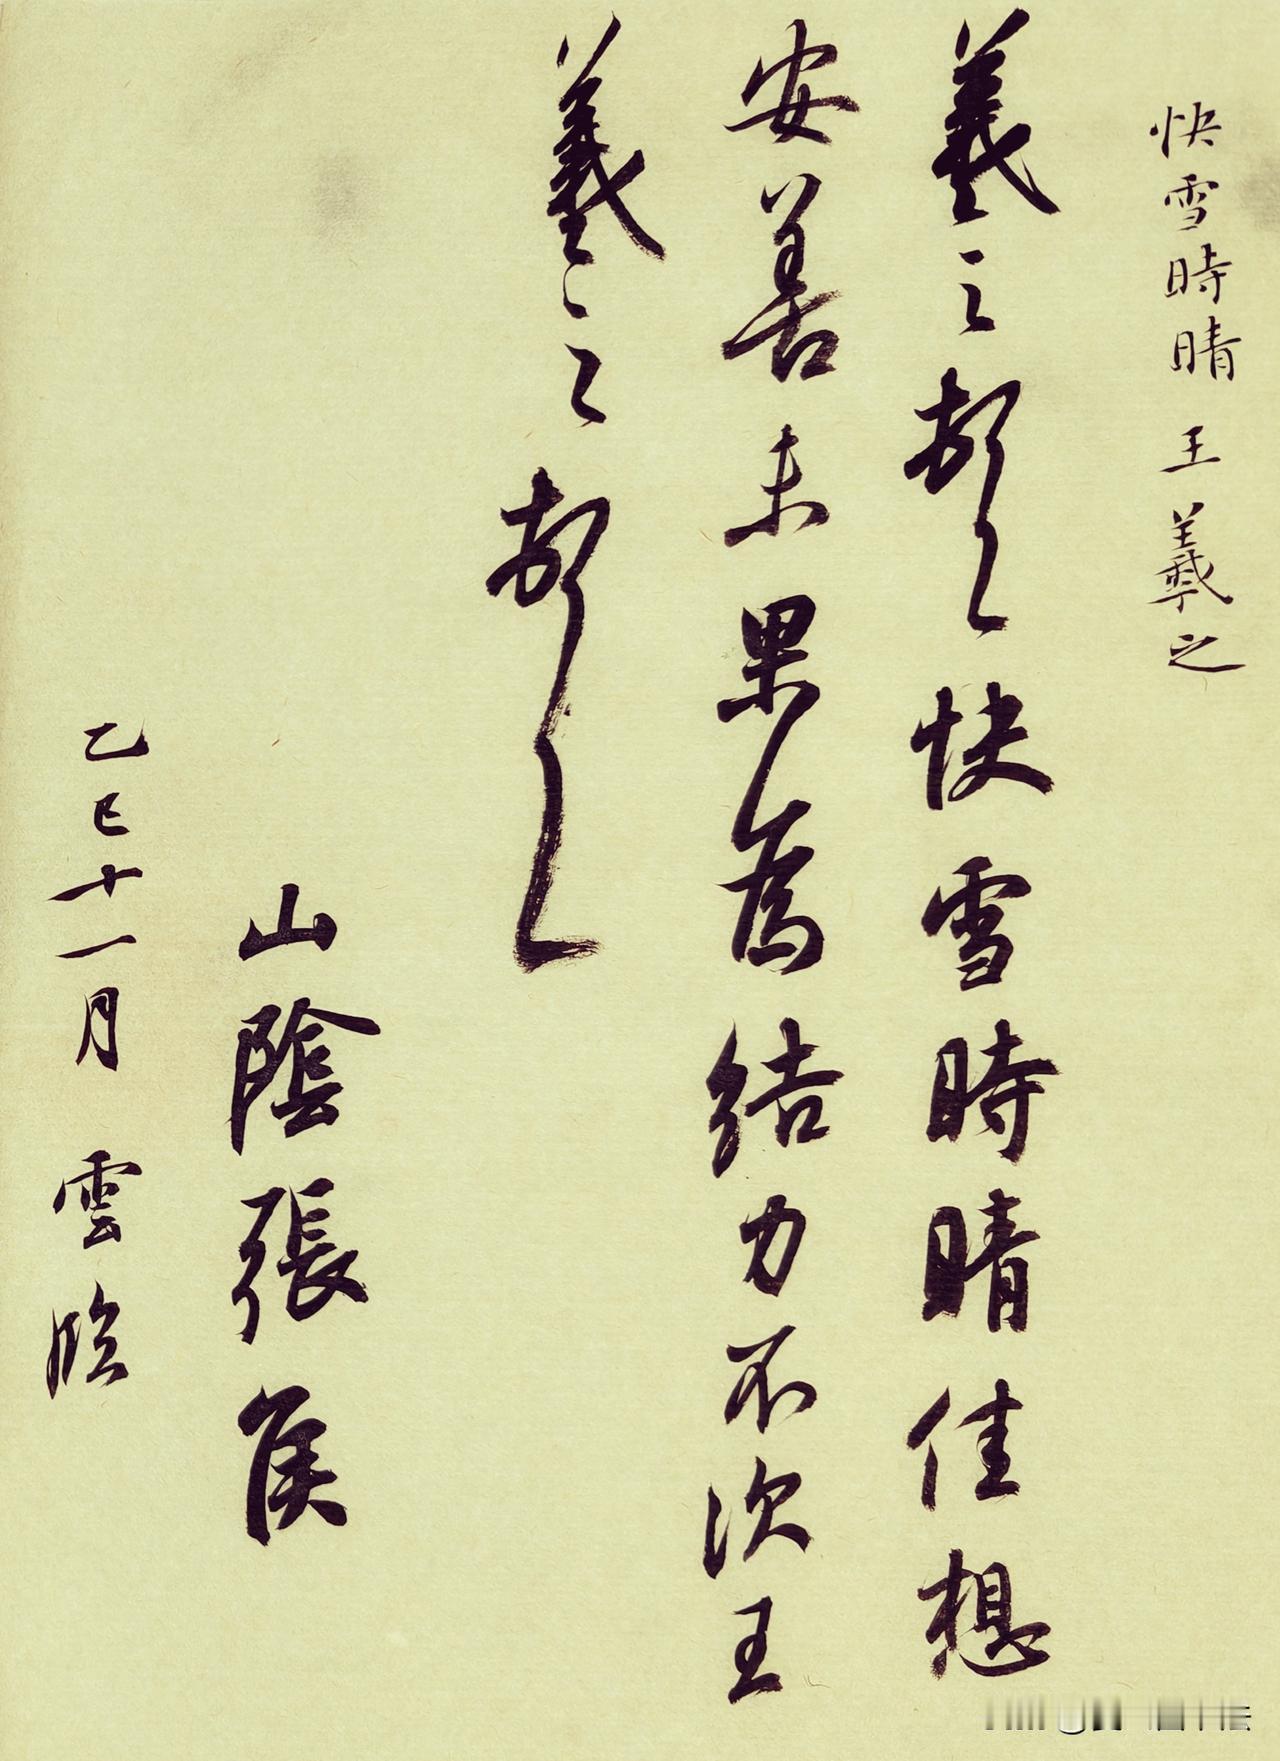 快雪時晴 王羲之
羲之頓首快雪時晴佳想
安善未果為結力不次王
羲之頓首
山陰張侯
乙巳十一月 雲臨